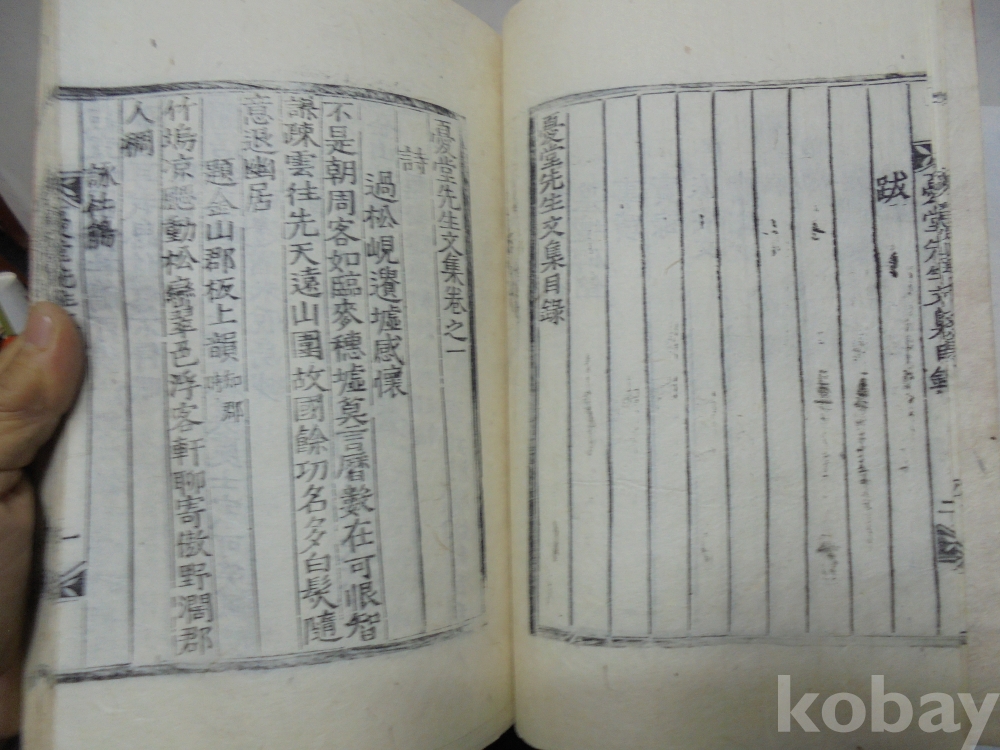 憂堂先生文集目錄
二
跋
憂堂先生文集目錄
憂堂先生文集卷之一
詩
過松峴遺墟感懷
不是朝周客如臨麥穗墟莫言曆數在可恨智
謀疎雲往先天遠山圍故國餘功名多白髮隨
意退幽居
題金山郡板上韻
郡
竹塢凉颸動松巒翠色浮客軒聊寄傲野濶郡
人稠
詠杜鵑
一
kobay